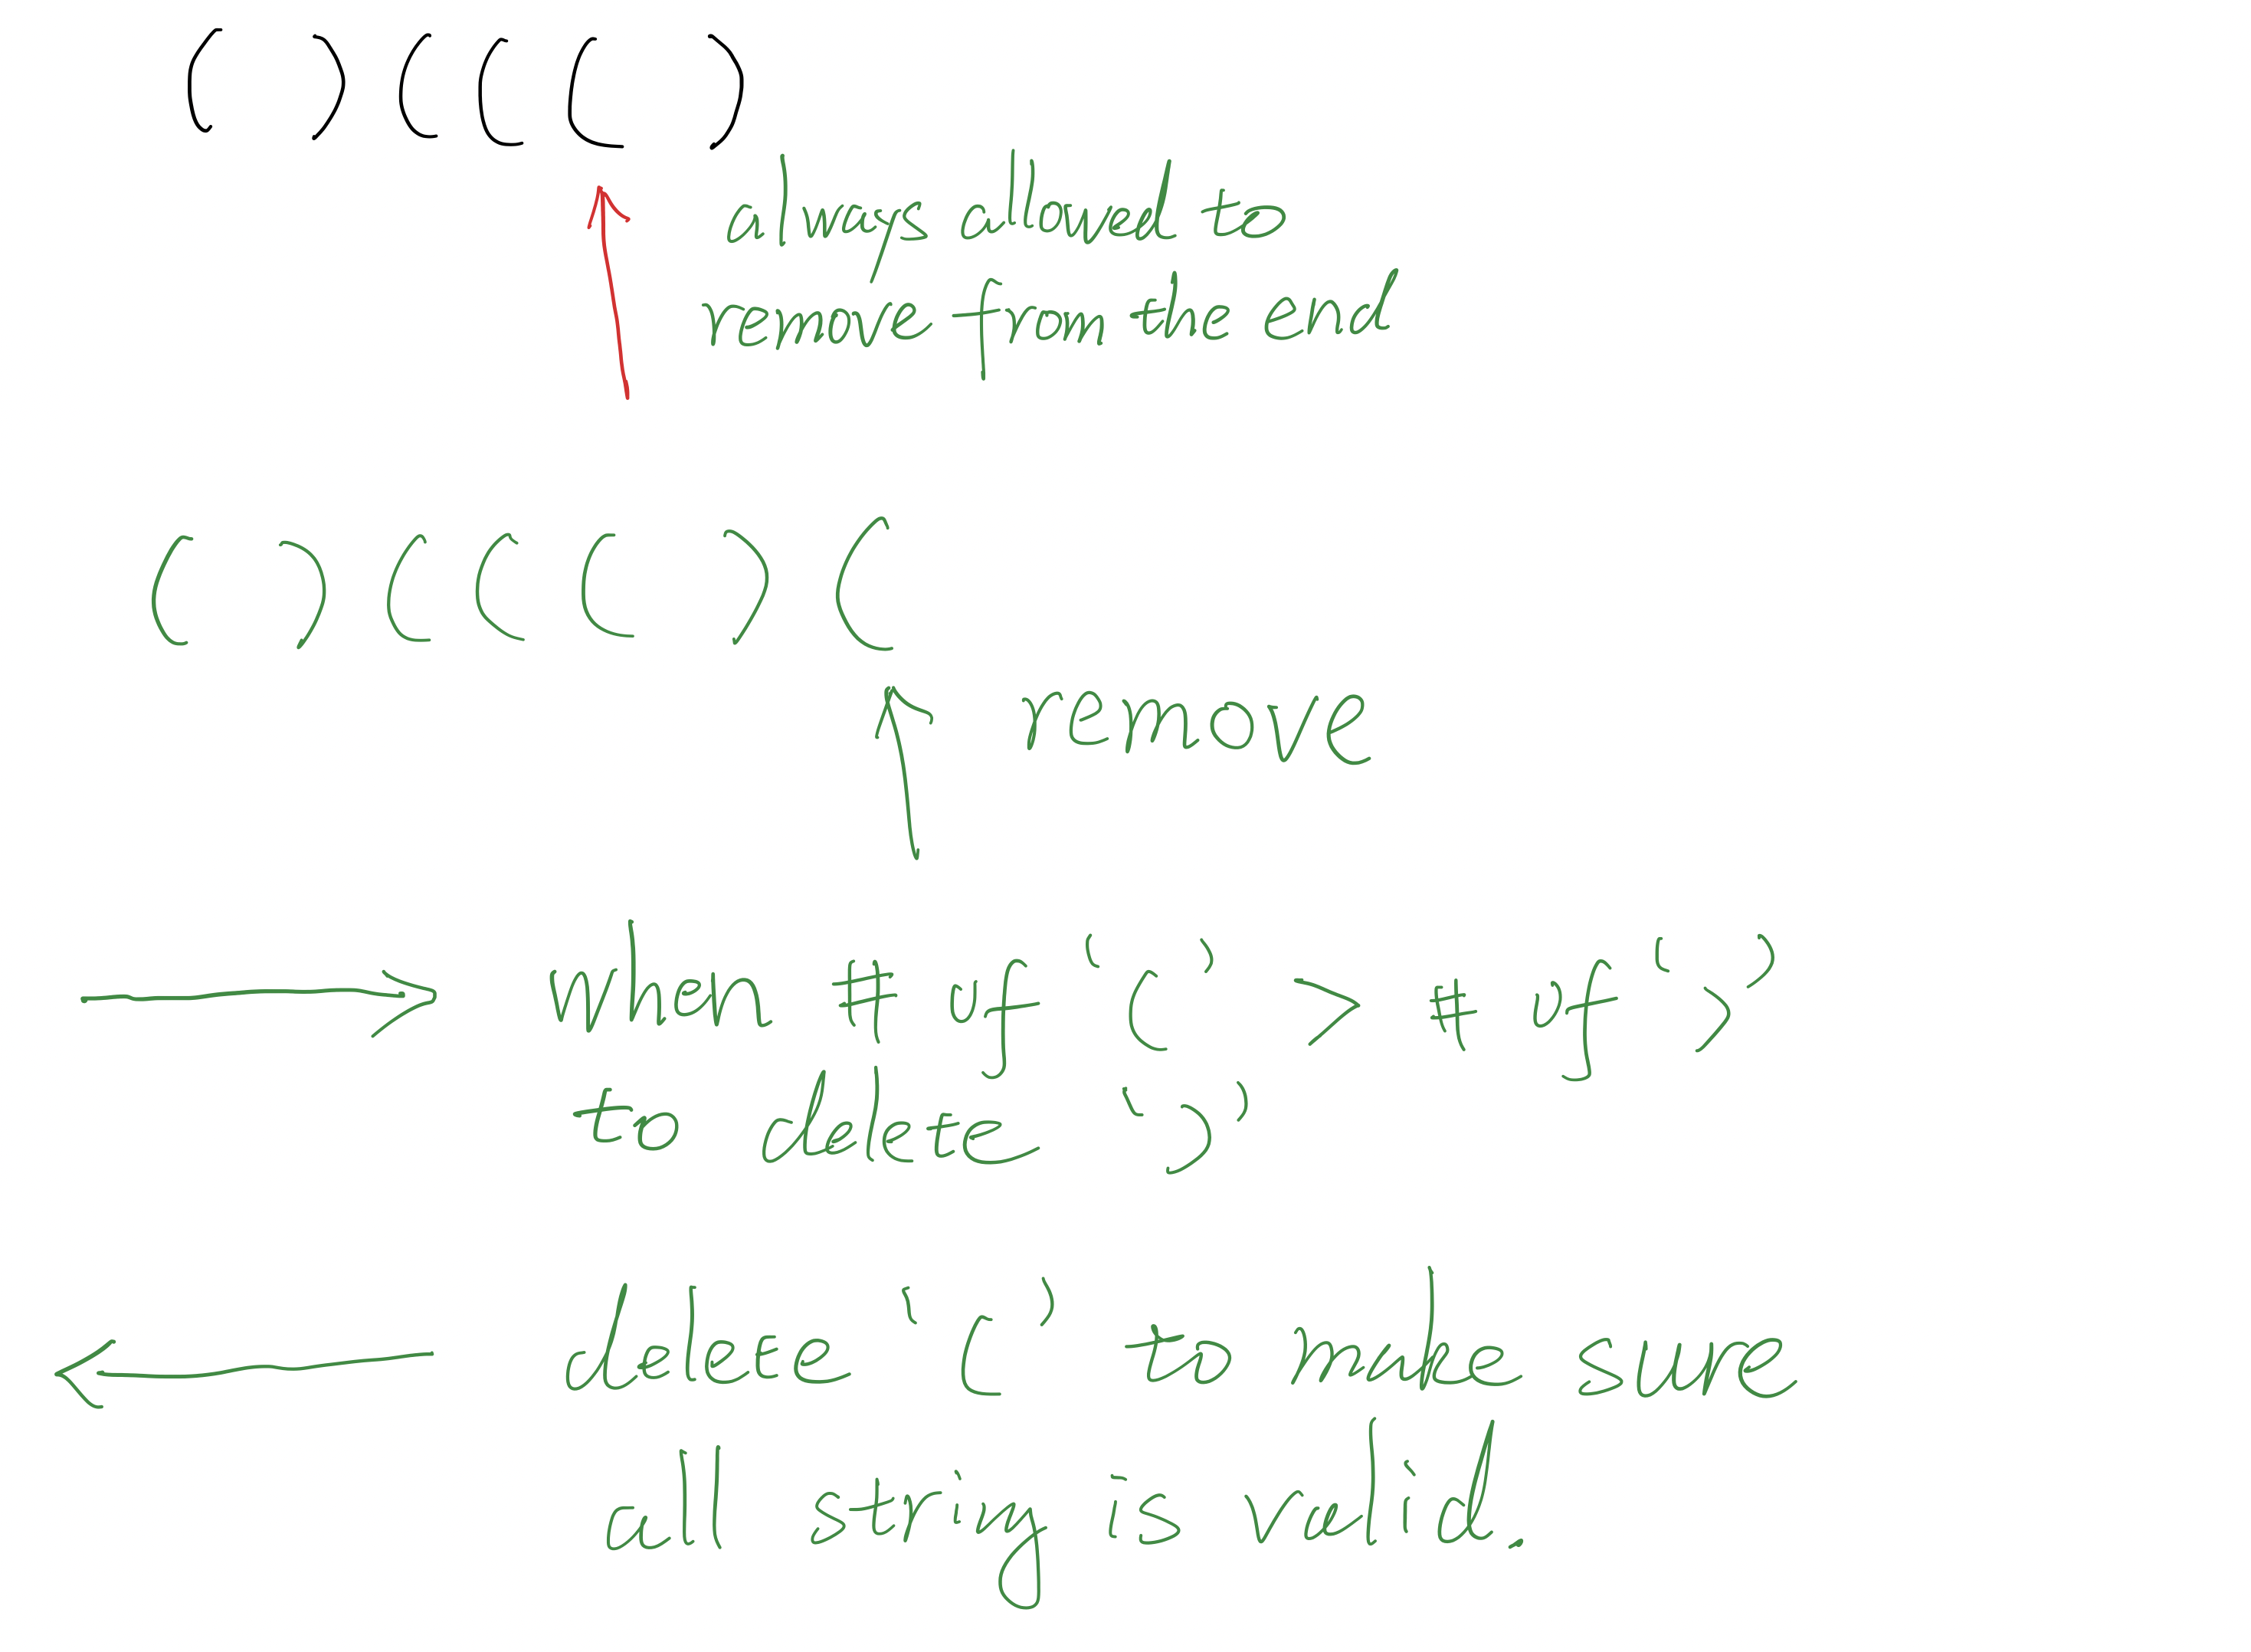 ( ) ( ( ( )
always allowed to
remove from the end
( ) ( ( ( ) (
remove
When # of '(' > # of ')'
to delete ')'
delete '(' to make sure
all string is valid.